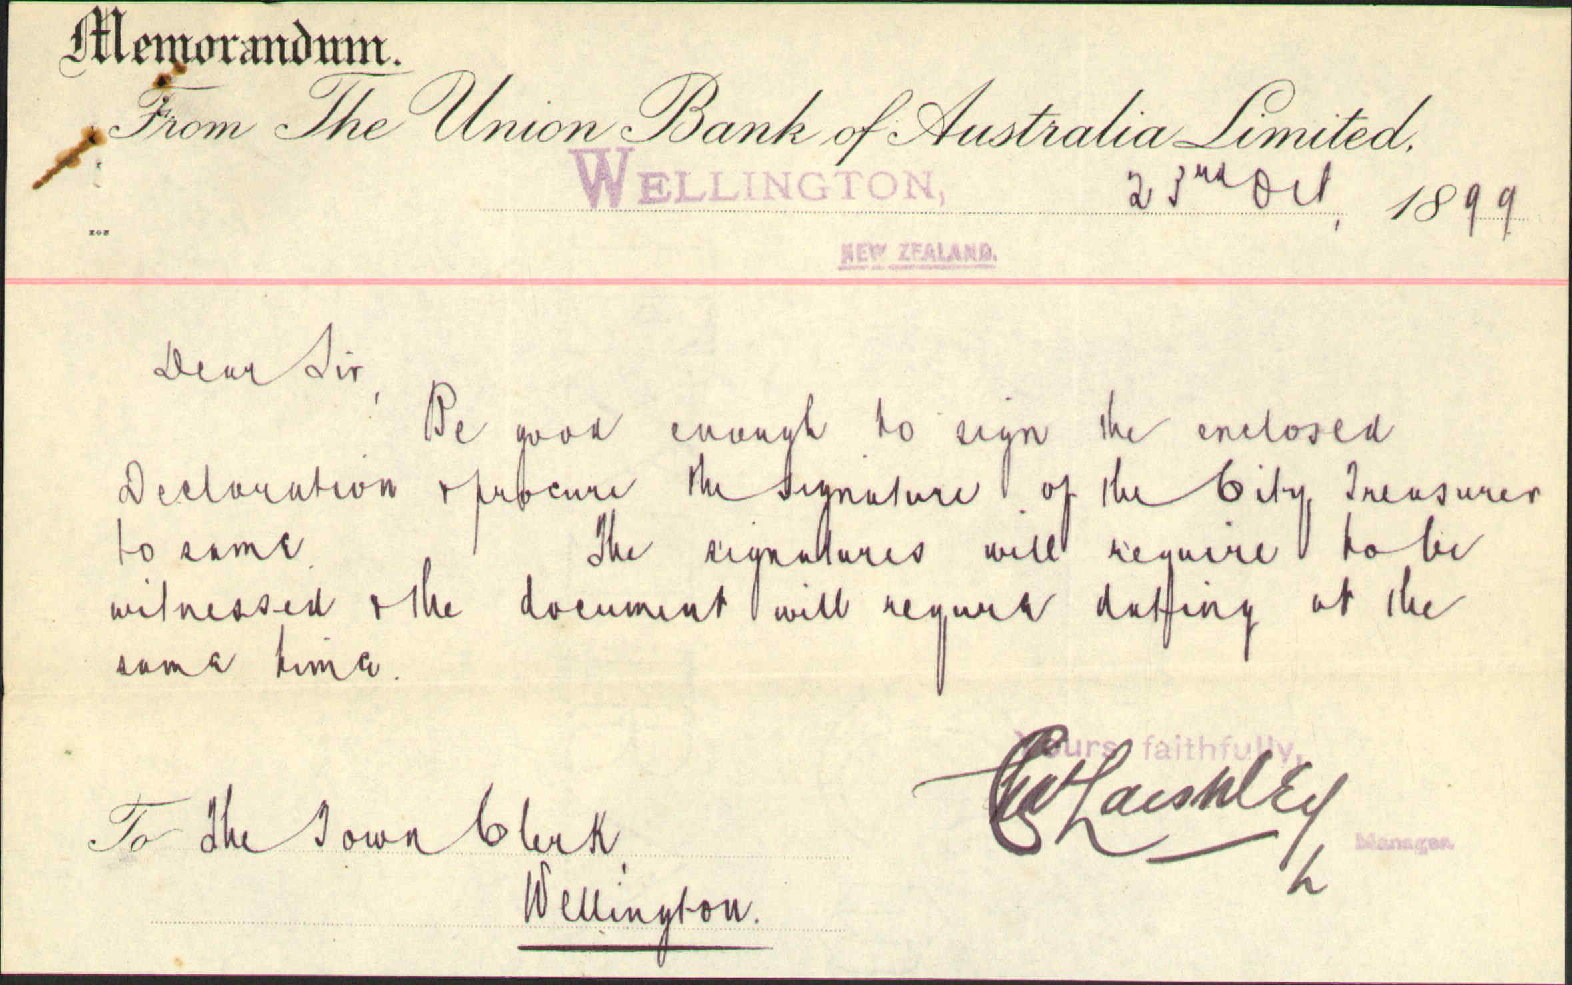 Memorandum.
From The Union Bank of Australia Limited.
WELLINGTON, 23rd Oct, 1899
NEW ZEALAND.
Dear Sir,
Be good enough to sign the enclosed
Declaration & procure the signature of the City Treasurer
to same. The signatures will require to be
witnessed & the document will require datting at the
same time.
Yours faithfully,
Manager.
To The Town Clerk,
Wellington.